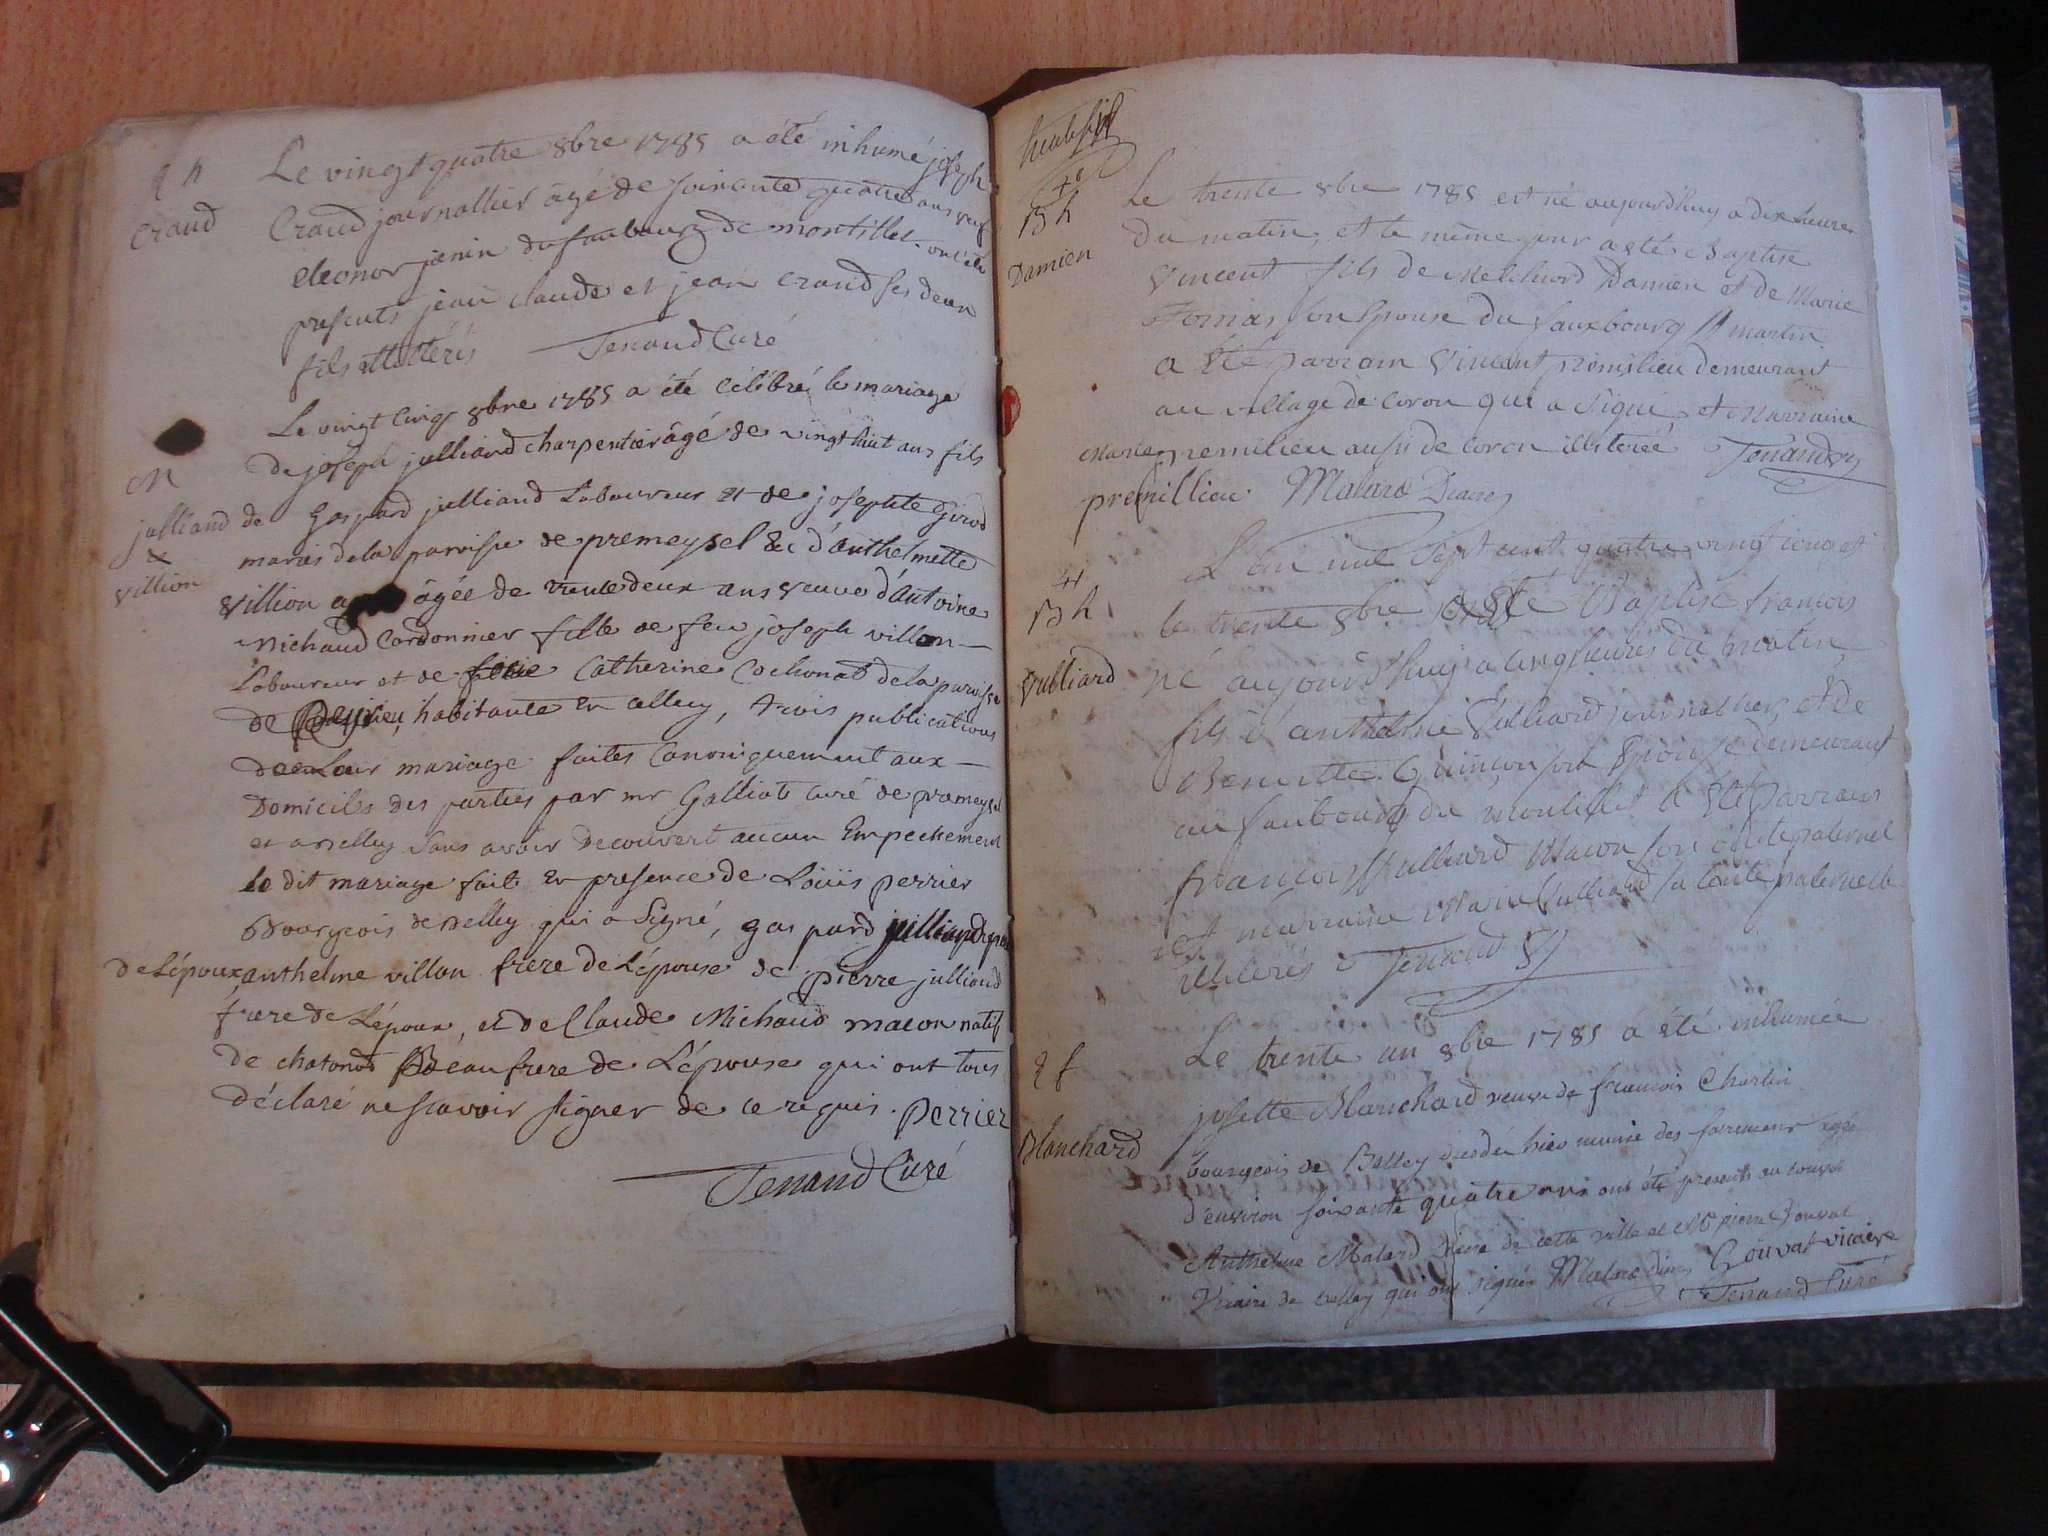 Le vingt quatre 8bre 1785 a été inhumé joseph
Craud
Craud journallier âgé de soixante quatre ans veuf
eleonor janin du faubourg de montillet. ont été
presents jean claude et jean craud ses deux
fils illitérés Tenand Curé
Le vingt cinq 8bre 1785 a été célébré le mariage
M
de joseph julliand charpentier âgé de vingt huit ans fils
julliand
&
villion
de Gaspard julliand Laboureur et de josephte Girod
mariés de la paroisse de premeysel & d'anthelmette
villion âgée de trente deux ans veuve d'Antoine
Michaud Cordonnier fille de feu joseph villon
Laboureur et de Catherine Cochonat de la paroisse
de habitante en Belley, trois publications
de Leur mariage faites Canoniquement aux
Domiciles des parties par mr Galliot curé de premeysel
et a Belley sans avoir decouvert aucun Empechement
le dit mariage fait en presence de Loüis perrier
Bourgeois de Belley qui a Signé, gaspard julliand pere
de L'époux, anthelme villon frere de L'épouse de pierre julliand
frere de L'époux, et de Claude Michaud macon natif
de chatonod Beaufrere de L'épouse qui ont tous
déclaré ne scavoir signer de ce requis. perrier
Tenand Curé
40
B h
Damien
Le trente 8bre 1785 est né aujourd'huy a dix heures
du matin, et le même jour a été Baptisé
Vincent fils de Melchiord Damien et de Marie
son Epouse du fauxbourg St martin
a été parrain Vincent premilieu demeurant
au village de Coron qui a signé et Marraine
Marie premilieu aussi de Coron illiterée Tenand
premillieu. Malard Diacre
41
B h
Vulliard
L'an mil sept cent quatre vingt cinq et
le trente 8bre a Eté Baptisé francois
né aujourd'huy a cinq heures du matin
fils d'anthelme Vulliard journalier, et de
Benoitte Guinçon son Epouse demeurant
au fauboug du montillet a Eté parrain
francois Vulliard Macon son oncle paternel
et marraine Marie Vulliard sa tante paternelle
illiterés Tenand
Blanchard
Le trente un 8bre 1785 a été inhumée
josette Blanchard veuve de francois Charlin
bourgeois de Belley décedée hier munie des sacremens agée
d'environ soixante quatre ans ont été presents au convoi
Anthelme Malard Diacre de cette ville et Mr pierre Gouvat
Vicaire de belley qui ont signés Malard diacre Gouvat vicaire
Tenand Curé